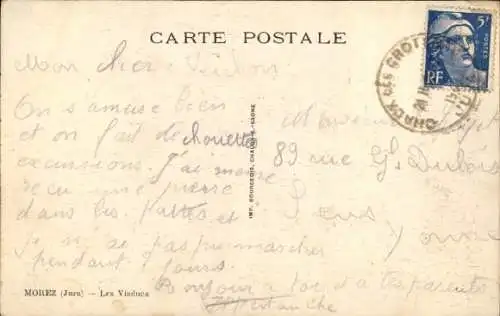 CARTE POSTALE
5F
RF
CHAUX DES CROT
Mon cher
On s'amuse bien
et on fait de chouettes
excursions. J'ai même
reçu une pierre
dans les pattes et
je n'ai pas pu marcher
pendant jours.
Bonjour à toi et à tes parents
Monsieur
89 rue G. Dubois
Sens
Yonne
IMP. BOURGEOIS, CHALON-S-SAONE
MOREZ (Jura) — Les Viaducs